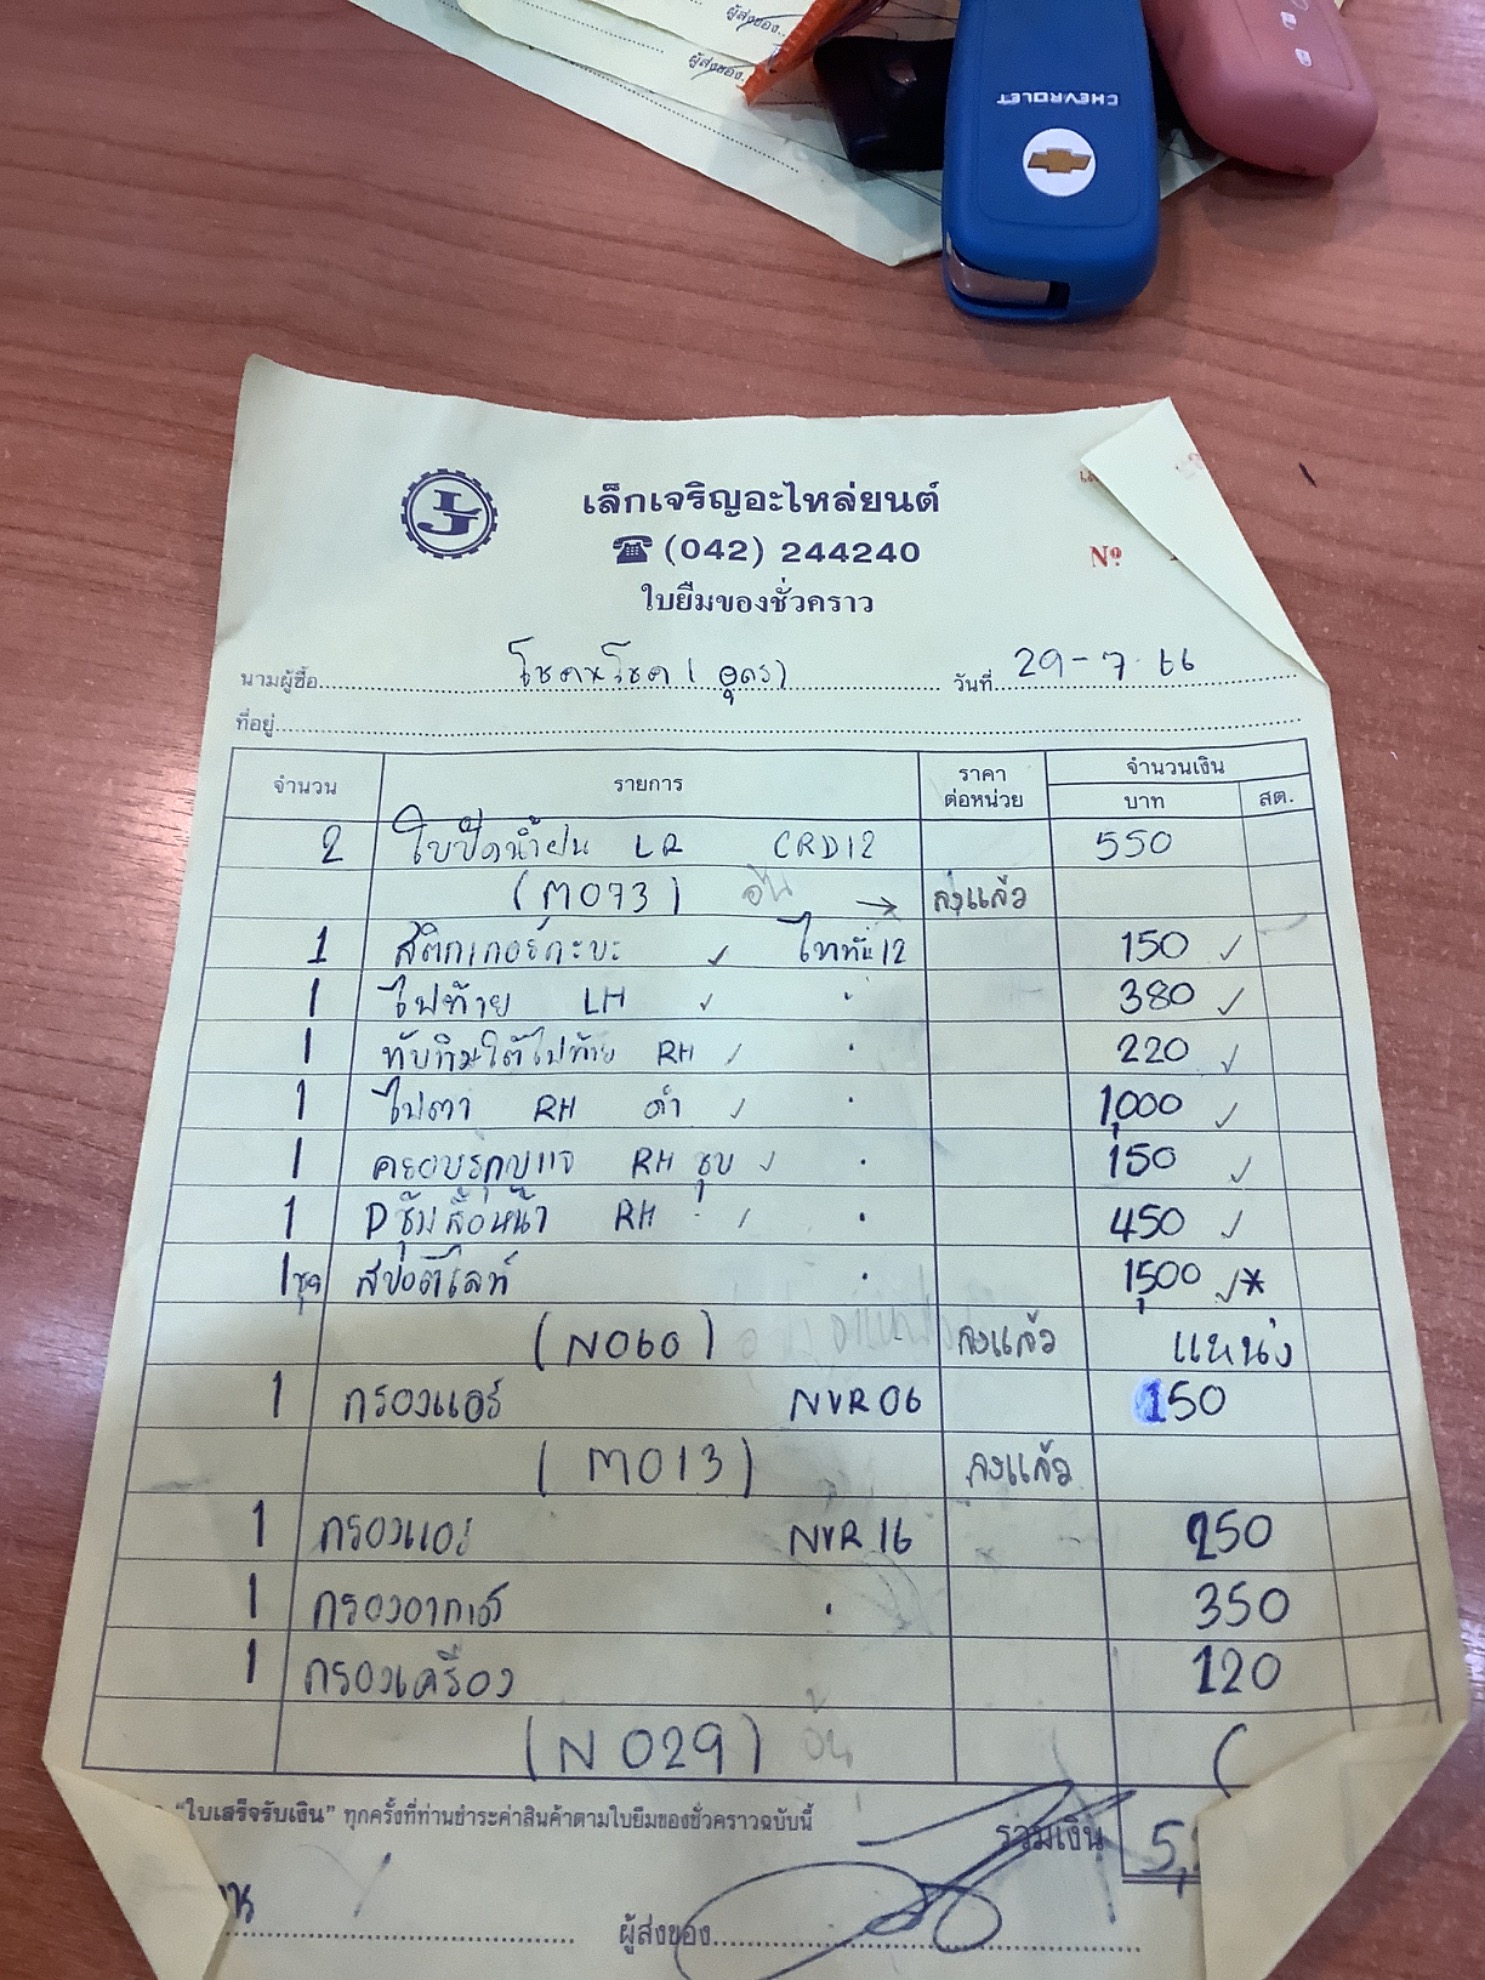 ผู้ส่งของ..
ผู้ส่งของ.
CHEVROLET
LJ
เล็กเจริญอะไหล่ยนต์
☎ (042) 244240
Nº
ใบยืมของชั่วคราว
นามผู้ซื้อ โชคนโชค (อุดร) วันที่ 29-7-66
ที่อยู่
จำนวน รายการ ราคาต่อหน่วย จำนวนเงิน
บาท สต.
2 ใบปัดน้ำฝน LR CRD12 550
(M073) → ลงแล้ว
1 สติกเกอร์กะบะ ✓ ไททัน12 150 ✓
1 ไฟท้าย LH ✓ " 380 ✓
1 ทับทิมใต้ไฟท้าย RH ✓ " 220 ✓
1 ไฟตา RH ดำ ✓ " 1,000 ✓
1 ครอบรูกุญแจ RH ชุบ ✓ " 150 ✓
1 Pซุ้มล้อหน้า RH ✓ " 450 ✓
1ชุด สปอตไลท์ " 1,500 ✓*
(N060) ลงแล้ว แหน่ง
1 กรองแอร์ NVR06 150
(M013) ลงแล้ว
1 กรองแอร์ NVR16 250
1 กรองอากาศ " 350
1 กรองเครื่อง 120
(N029)
"ใบเสร็จรับเงิน" ทุกครั้งที่ท่านชำระค่าสินค้าตามใบยืมของชั่วคราวฉบับนี้
รวมเงิน 5,
ผู้ส่งของ